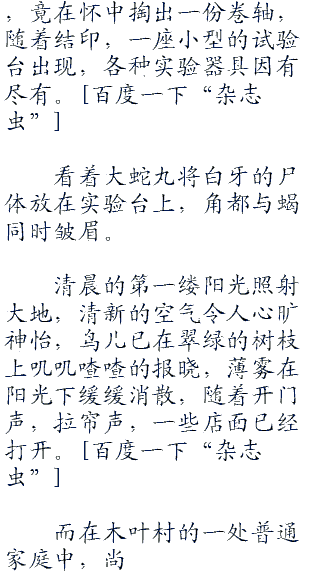 ，竟在怀中掏出一份卷轴，
随着结印，一座小型的试验
台出现，各种实验器具因有
尽有。[百度一下“杂志
虫”]
看着大蛇丸将白牙的尸
体放在实验台上，角都与蝎
同时皱眉。
清晨的第一缕阳光照射
大地，清新的空气令人心旷
神怡，鸟儿已在翠绿的树枝
上叽叽喳喳的报晓，薄雾在
阳光下缓缓消散，随着开门
声，拉帘声，一些店面已经
打开。[百度一下“杂志
虫”]
而在木叶村的一处普通
家庭中，尚